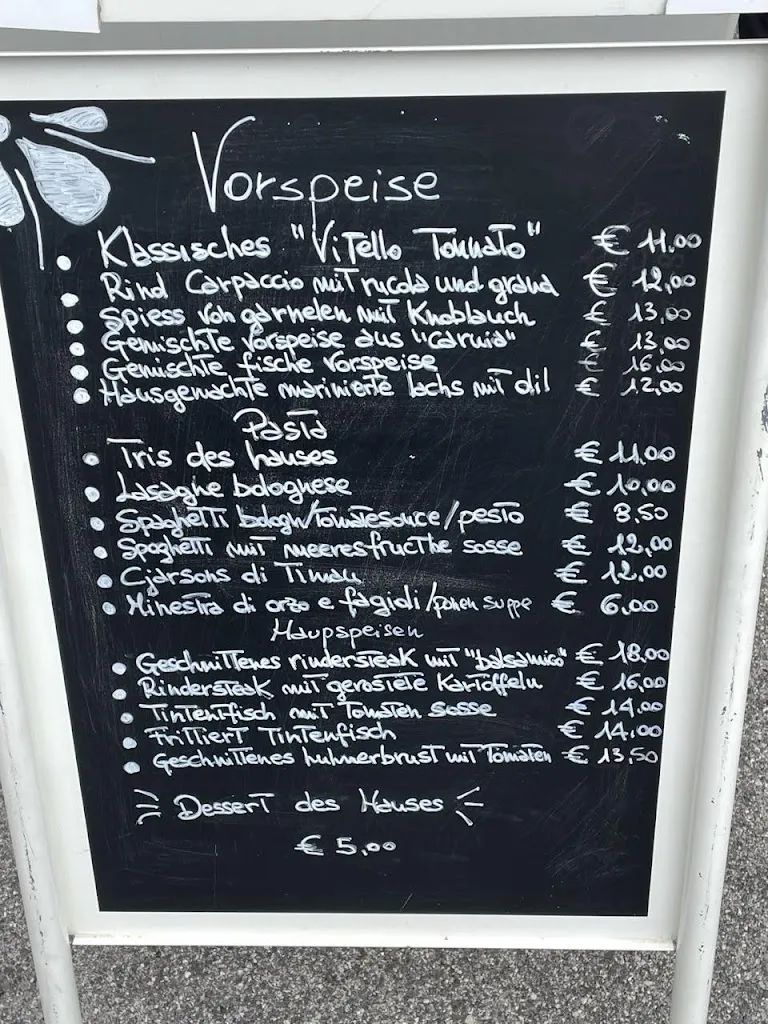 Vorspeise
Klassisches "Vitello Tonnato" € 11,00
Rind Carpaccio mit rucola und grana € 12,00
Spiess von garnelen mit Knoblauch € 13,00
Gemischte vorspeise aus "carnia" € 13,00
Gemischte fische vorspeise € 16,00
Hausgemachte marinierte lachs mit dil € 12,00
Pasta
Tris des hauses € 11,00
Lasaghe bolognese € 10,00
Spaghetti bologn/tomatesouce/pesto € 8,50
Spaghetti mit meeresfructhe sosse € 12,00
Cjarsons di Timau € 12,00
Minestra di orzo e fagioli/bonen suppe € 6,00
Haupspeisen
Geschnittenes rindersteak mit "balsamico" € 18,00
Rindersteak mit gerostete Kartoffeln € 16,00
Tintenfisch mit Tomaten sosse € 14,00
Frittiert Tintenfisch € 14,00
Geschnittenes huhnerbrust mit Tomaten € 13,50
Dessert des Hauses
€ 5,00